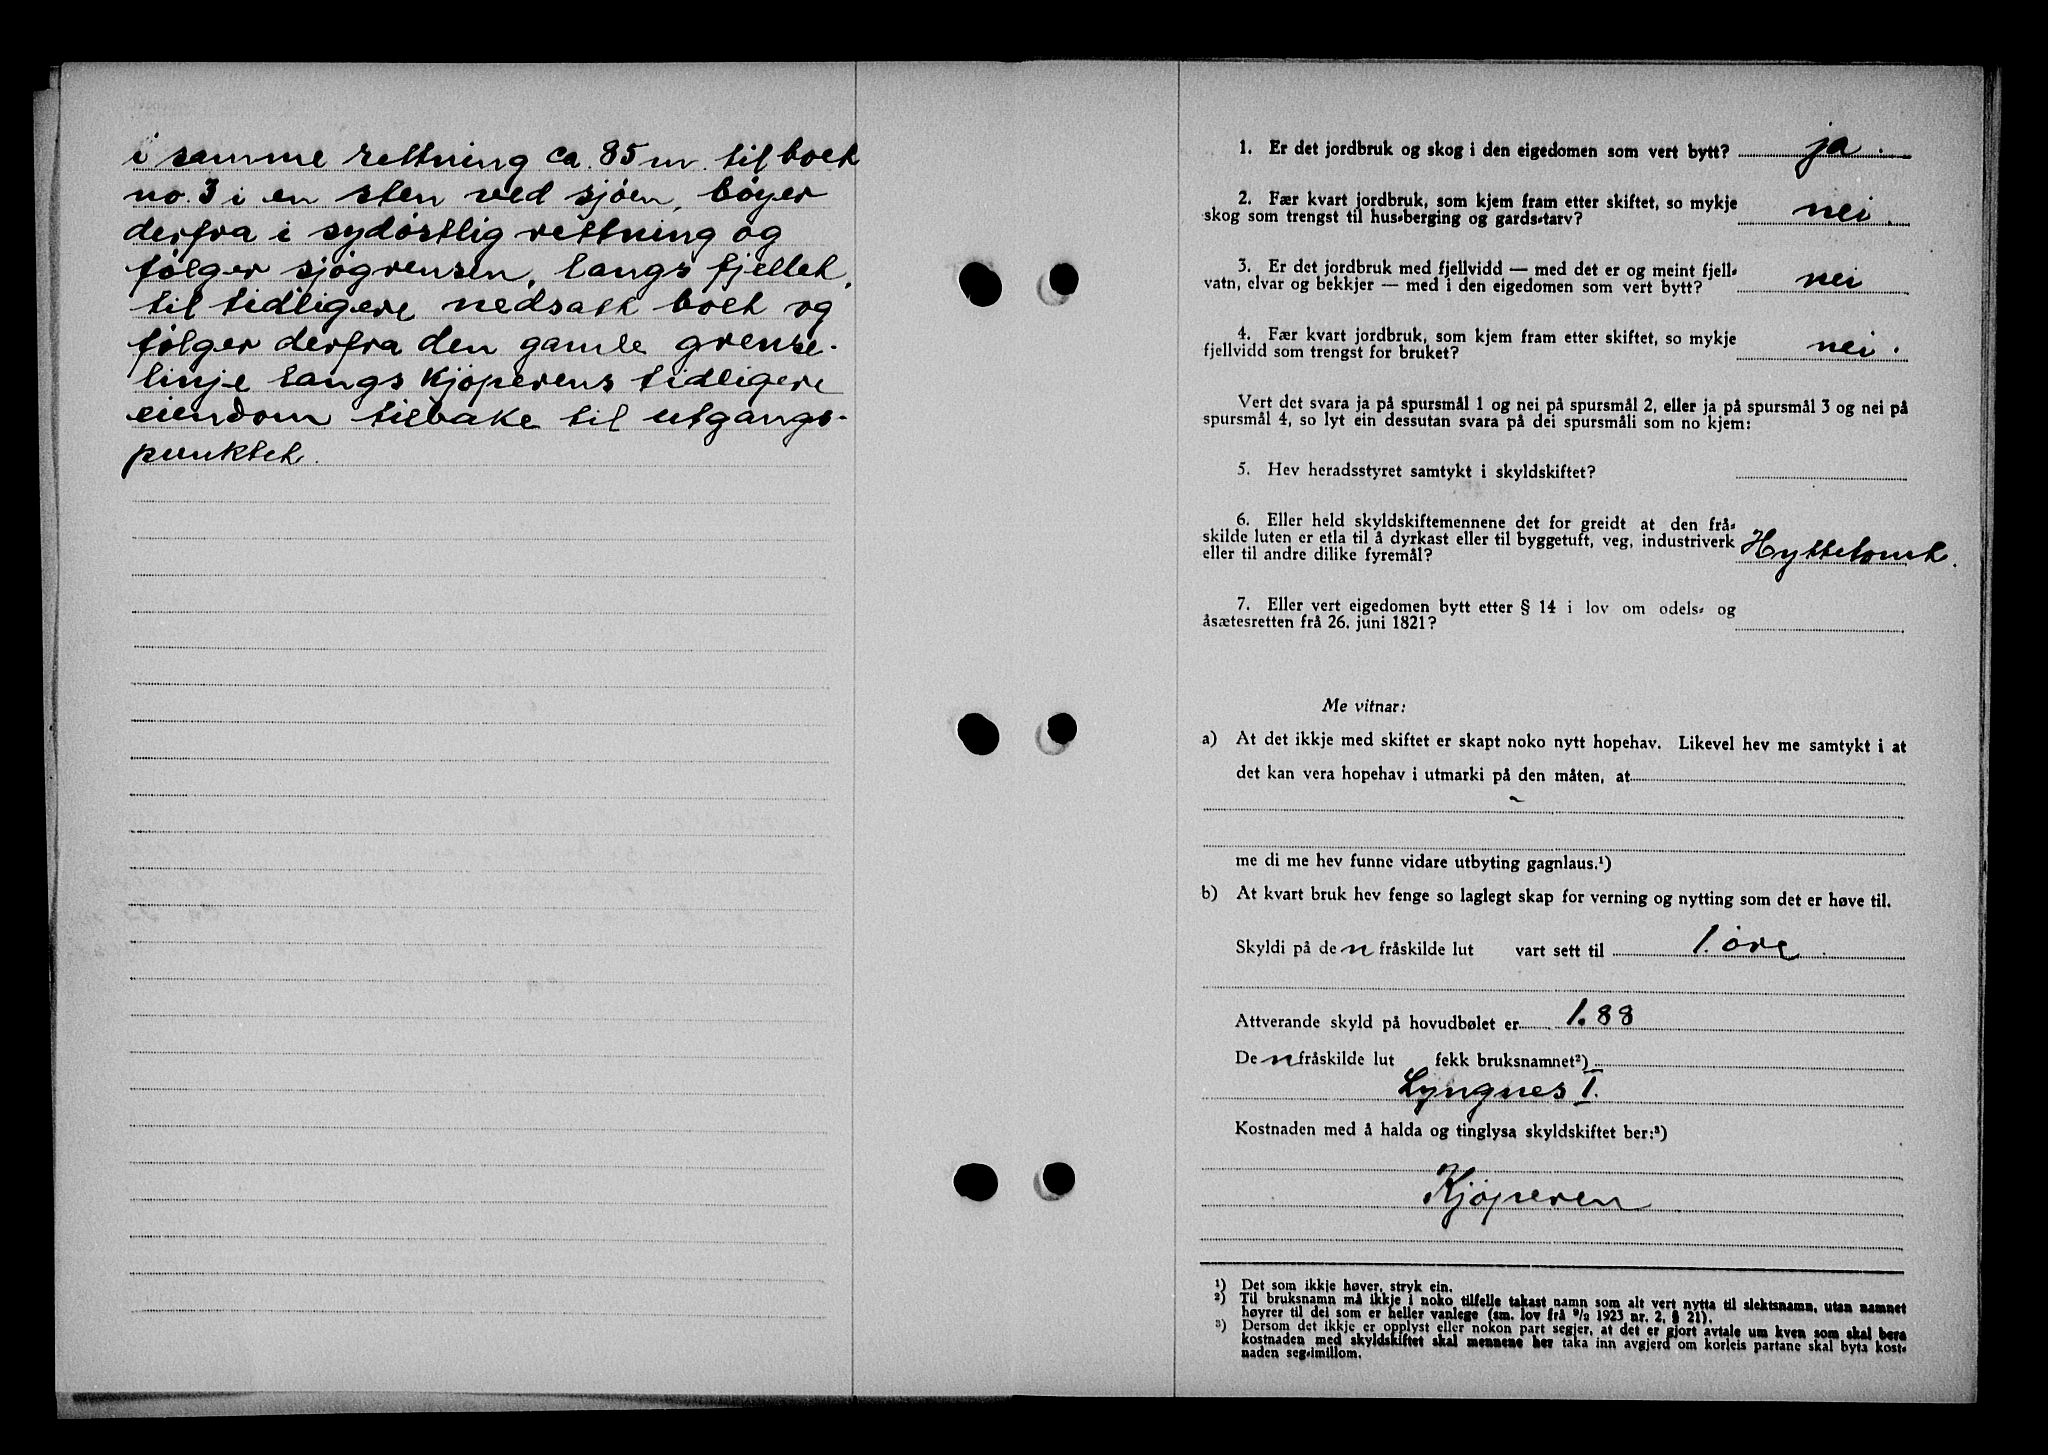 i samme rettning ca. 85 m. til bolt
no. 3 i en sten ved sjøen, bøyer
derfra i sydøstlig rettning og
følger sjøgrensen, langs fjellet,
til tidligere nedsatt bolt og
følger derfra den gamle grense-
linje langs kjøperens tidligere
eiendom tilbake til utgangs-
punktet.
1. Er det jordbruk og skog i den eigedomen som vert bytt? ja.
2. Fær kvart jordbruk, som kjem fram etter skiftet, so mykje
skog som trengst til hus-berging og gards-tarv? nei.
3. Er det jordbruk med fjellvidd — med det er og meint fjell-
vatn, elvar og bekkjer — med i den eigedomen som vert bytt? nei
4. Fær kvart jordbruk, som kjem fram etter skiftet, so mykje
fjellvidd som trengst for bruket? nei.
Vert det svara ja på spursmål 1 og nei på spursmål 2, eller ja på spursmål 3 og nei på
spursmål 4, so lyt ein dessutan svara på dei spursmåli som no kjem:
5. Hev heradsstyret samtykt i skyldskiftet?
6. Eller held skyldskiftemennene det for greidt at den frå-
skilde luten er etla til å dyrkast eller til byggetuft, veg, industriverk
eller til andre dilike fyremål? Hyttetomt.
7. Eller vert eigedomen bytt etter § 14 i lov om odels- og
åsætesretten frå 26. juni 1821?
Me vitnar:
a) At det ikkje med skiftet er skapt noko nytt hopehav. Likevel hev me samtykt i at
det kan vera hopehav i utmarki på den måten, at
me di me hev funne vidare utbyting gagnlaus.¹)
b) At kvart bruk hev fenge so laglegt skap for verning og nytting som det er høve til.
Skyldi på den fråskilde lut vart sett til 1. øre
Attverande skyld på hovudbølet er 1.88
Den fråskilde lut fekk bruksnamnet²)
Lyngnes I.
Kostnaden med å halda og tinglysa skyldskiftet ber:³)
Kjøperen
¹) Det som ikkje høver, stryk ein.
²) Til bruksnamn må ikkje i noko tilfelle takast namn som alt vert nytta til slektsnamn, utan namnet
høyrer til dei som er heller vanlege (sm. lov frå 9/2 1923 nr. 2, § 21).
³) Dersom det ikkje er opplyst eller nokon part segjer, at det er gjort avtale um kven som skal bera
kostnaden med skyldskiftet skal mennene her taka inn avgjerd om korleis partane skal byta kost-
naden seg-imillom.